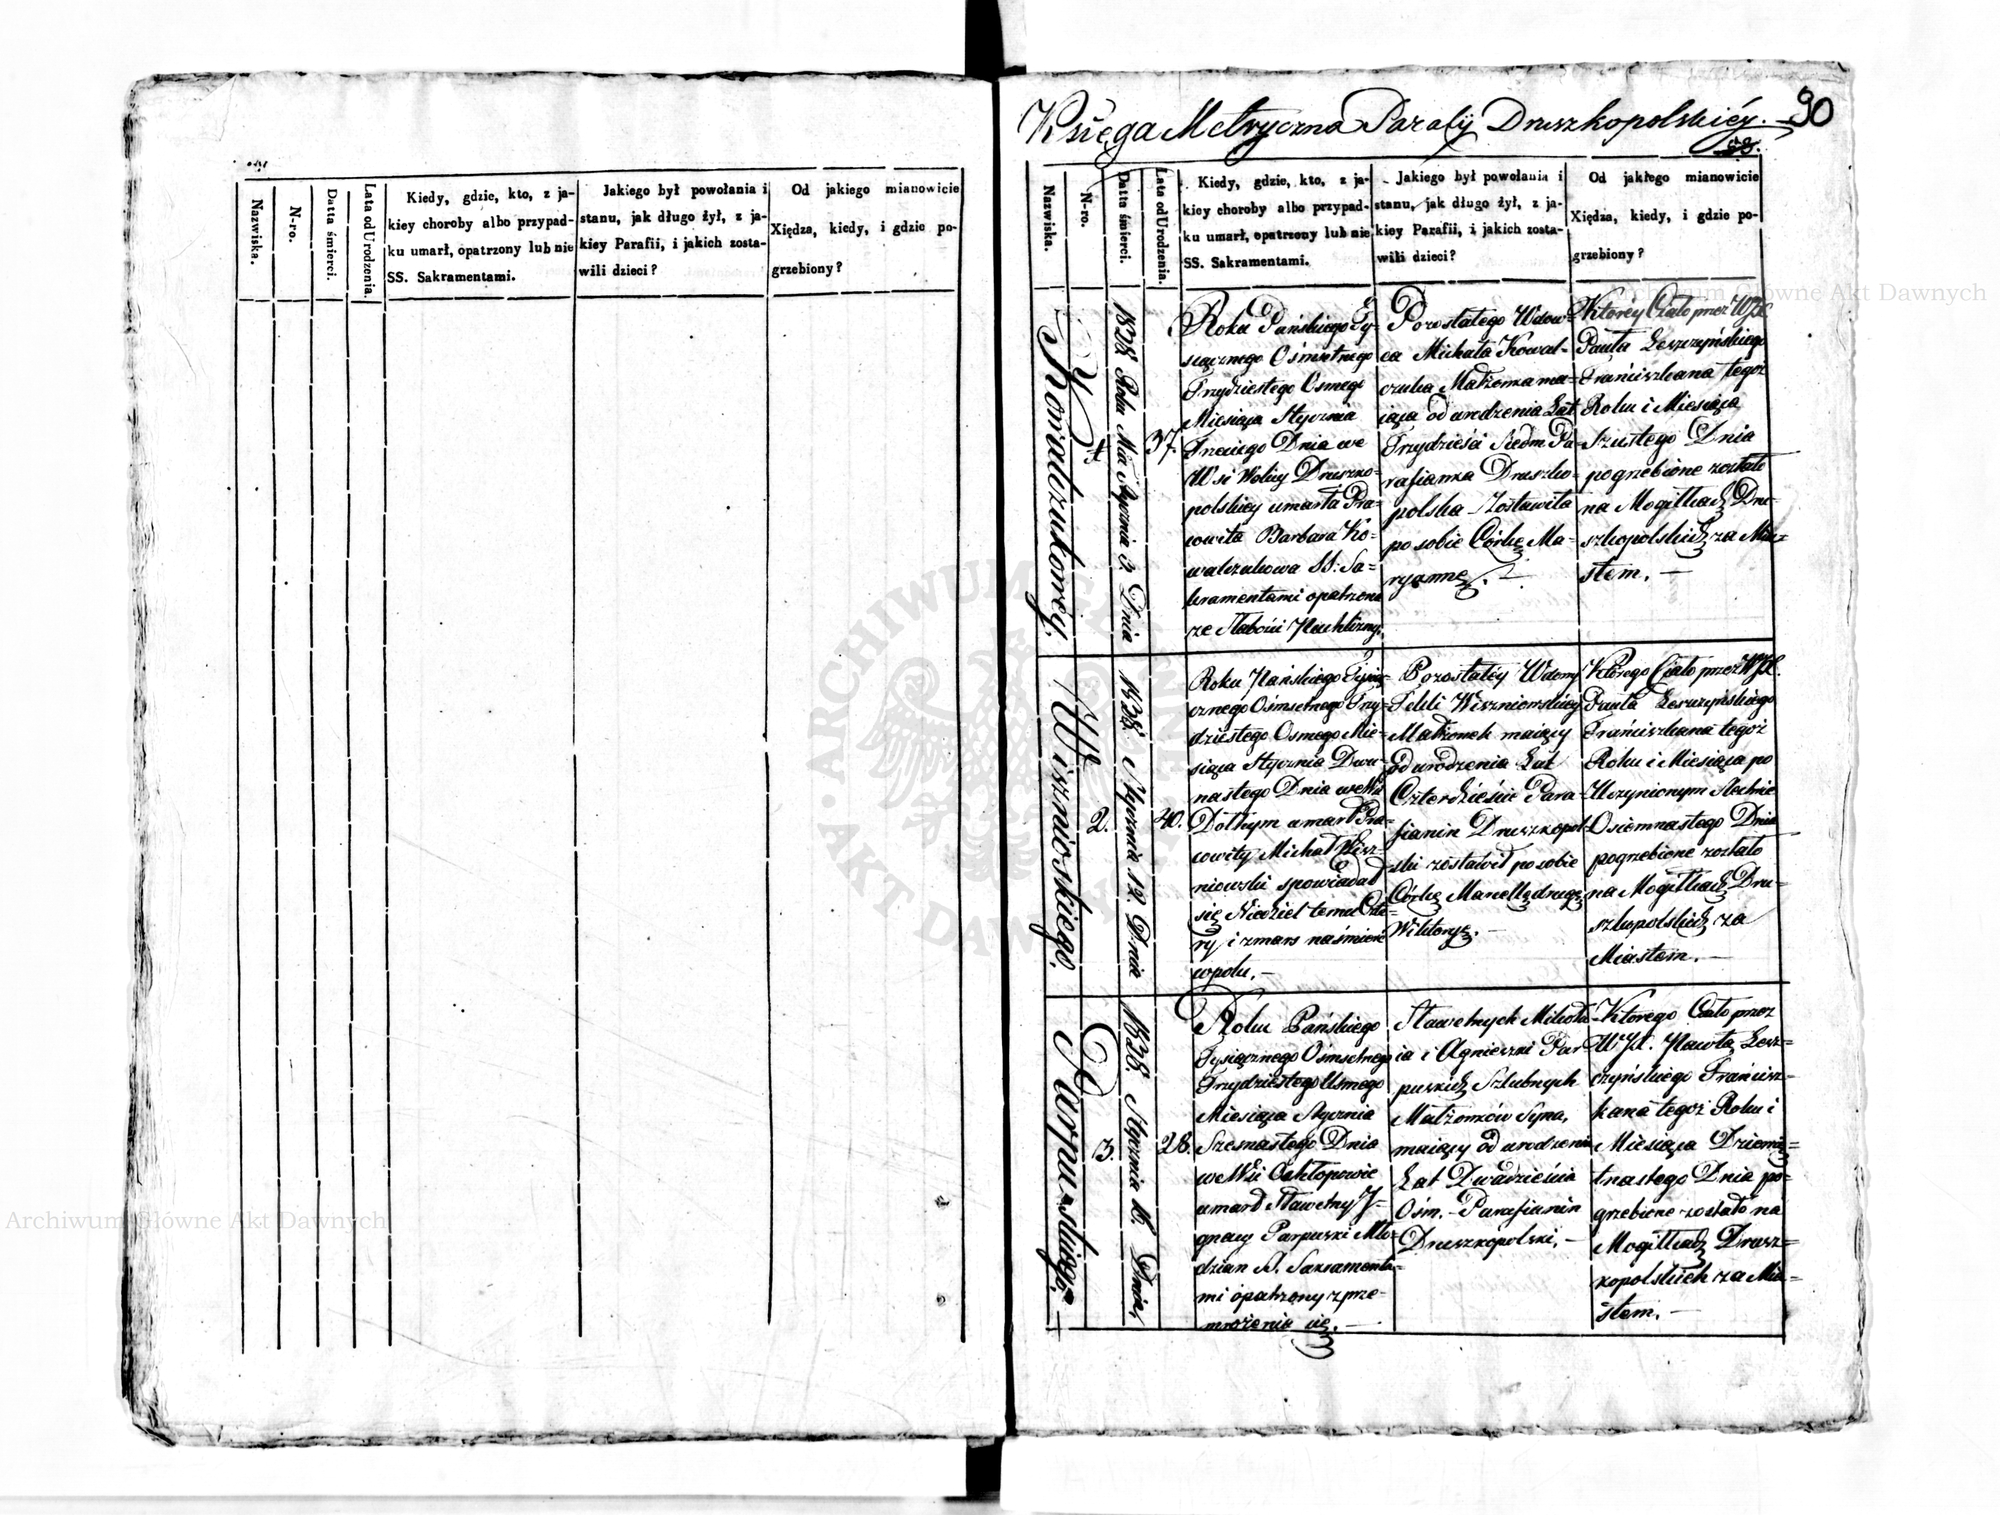 Księga Metryczna Parafij Druszkopolskiéy. 90
Nazwiska.
N-ro.
Datta śmierci.
Lata od Urodzenia.
Kiedy, gdzie, kto, z ja-
kiey choroby albo przypad-
ku umarł, opatrzony lub nie
SS. Sakramentami.
Jakiego był powołania i
stanu, jak długo żył, z ja-
kiey Parafii, i jakich zosta-
wili dzieci?
Od jakiego mianowicie
Xiędza, kiedy, i gdzie po-
grzebiony?
Nazwiska.
N-ro.
Datta śmierci.
Lata od Urodzenia.
Kiedy, gdzie, kto, z ja-
kiey choroby albo przypad-
ku umarł, opatrzony lub nie
SS. Sakramentami.
Jakiego był powołania i
stanu, jak długo żył, z ja-
kiey Parafii, i jakich zosta-
wili dzieci?
Od jakiego mianowicie
Xiędza, kiedy, i gdzie po-
grzebiony?
Kowalczukowéy.
1838 Roku Mca Stycznia 3. Dnia
37.
Roku Pańskiego Ty-
siącznego Ośmsetnego
Trzydziestego Osmego
Miesiąca Stycznia
Trzeciego Dnia we
Wsi Wolicy Druszko-
polskiey umarła Pra-
cowita Barbara Ko-
walczukowa SS: Sa-
kramentami opatrzona
ze Słabości
Pozostałego Wdow-
ca Michała Kowal-
czuka Małżonka ma-
iąca od urodzenia Lat
Trzydzieści Siedm Pa-
rafianka Druszko-
polska Zostawiła
po sobie Córkę Ma-
ryannę. —
Ktorey Ciało przez WJX.
Pawła Leszczyńskiego
Franciszkana tegoż
Roku i Miesiąca
Szustego Dnia
pogrzebione zostało
na Mogiłkach Dru-
szkopolskich za Mia-
stem. —
Wiszniowskiego.
2.
1838. Stycznia 12. Dnia
40.
Roku Pańskiego Tysią-
cznego Ośmsetnego Trzy-
dziestego Osmego Mie-
siąca Stycznia Dwu-
nastego Dnia we Wsi
Dolhym umarł Pra-
cowity Michał Wisz-
niowski spowiadał
się Niedziel temu Czte-
ry i zmarz na śmierć
w polu. —
Pozostałey Wdowy
Tekli Wiszniowskiey
Małżonek maiący
od urodzenia Lat
Czterdzieście Para-
fianin Druszkopol-
ski zostawił po sobie
Córkę Marcellę drugą
Wiktoryę. —
Którego Ciało przez WJX.
Pawła Leszczyńskiego
Franciszkana tegoż
Roku i Miesiąca po
Uczynionym Slectwie
Osiemnastego Dnia
pogrzebione zostało
na Mogiłkach Dru-
szkopolskich za
Miastem. —
Parpuskiego.
3.
1838. Stycznia 16. Dnia,
28.
Roku Pańskiego
Tysiącznego Ośmsetnego
Trzydziestego Usmego
Miesiąca Stycznia
Szesnastego Dnia
we Wsi Ochłopowie
umarł Sławetny J-
gnacy Parpuski Mło-
dzian SS. Sakramenta-
mi opatrzony z prze-
mrożenia się. —
Sławetnych Mikoła-
ia i Agnieszki Par-
puskich Szlubnych
Małżonków Syna,
maiący od urodzenia
Lat Dwadzieścia
Ośm. — Parafianin
Druszkopolski. —
Ktorego Ciało przez
WJX. Pawła Lesz-
czyńskiego Francisz-
kana tegoż Roku i
Miesiąca Dziewię-
tnastego Dnia po-
grzebione zostało na
Mogiłkach Drusz-
kopolskich za Mia-
stem. —
Archiwum Główne Akt Dawnych
Archiwum Główne Akt Dawnych
ARCHIWUM GŁÓWNE
AKT DAWNYCH